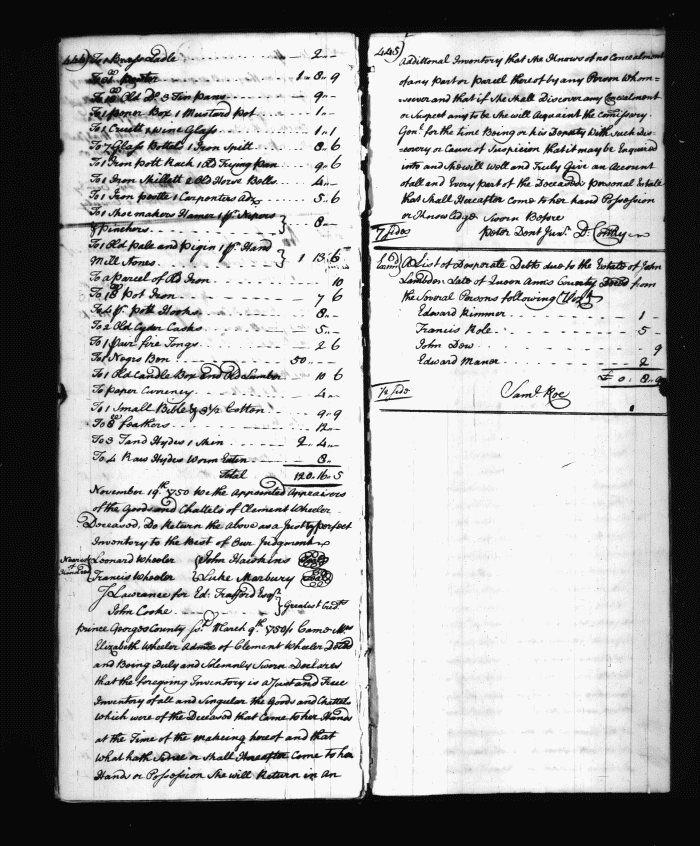 444) To 1 Brass Ladle 2 ..
To Pewter 1 .. 8 .. 9
To Old Do 3 Tin Pans 9 ..
To 1 Box 1 Mustard Pot 1 ..
To 1 Cruett & Wine Glass 1 .. 1
To 7 Glass Bottels 1 Iron Spitt 8 .. 6
To 1 Iron Pott Rack 1 Old Frying Pan 9 .. 6
To 1 Iron Skillett 2 Old Horse Bells 4 ..
To 1 Iron 1 Carpenters Adx 5 .. 6
To 1 Shoemakers Hamer 1 pr. Nipers
& pinchers } 8 ..
To 1 Old pale and pigin 1 pr. Hand
Mill Stones } 1 13 .. 6
To a parcel of Old Iron 10
To Pot Iron 7 6
To 4 pr. Pott Hooks 8 ..
To 2 Old Cyder Casks 5 ..
To 1 Fire Tongs 2 6
To 1 Negro Ben 50
To 1 Old Candle Box and Old Lumber 10 6
To paper Currency 4 ..
To 1 Small Bible & 3½ Cotton 9 .. 9
To 8 feathers 12 ..
To 3 Tand Hydes 1 Skin 2 .. 4 ..
To 4 Raw Hydes Worm Eaten 8 ..
Total 120 .. 16 .. 5
November 19th 1750 We the Appointed Appraisers
of the Goods and Chattels of Clement Wheeler
Deceased, Do Return the above as a Just & perfect
Inventory to the Best of Our Judgment
Nearest of Kindred { Leonard Wheeler { John Hawkins Seal
Francis Wheeler { Luke Marbury Seal
J Lawrance for Ed: Trafford Esqr.
John Cooke } Greatest Credrs
Prince Georges County March 9th 1750/1 Came Mrs
Elizabeth Wheeler Admx of Clement Wheeler Deced
and Being Duly and Solemnly Sworn Declares
that the foregoing Inventory is a Just and True
Inventory of all and Singular the Goods and Chattels
which were of the Deceased that Came to her Hands
at the Time of the makeing hereof and that
what hath Since or Shall Hereafter Come to her
Hand or Possession She will Return in an
445)
Additional Inventory that She Knows of no Concealment
of any Part or Parcel thereof by any Person Whom=
=soever and that if she Shall Discover any Concealment
or Suspect any to be She will Acquaint the Comissary
Genl. for the Time Being or his Deputy With Such dis=
=covery or Cause of Suspicion that it may be Enquired
into and She will Well and Truly Give an Account
of all and Every part of the Deceased Personal Estate
that Shall Hereafter Come to her hand Possession
or Knowledge Sworn Before
7 Sides Peter Dent Junr. D. Comry
A List of Desperate Debts due to the Estate of John
Lambdon Late of Queen Anns County Deced from
the Several Persons following (Vizt)
Edward Rimmer 1 ..
Francis Role 5 ..
John Dew 9
Edward Maner 2
£ 0 : 8 .. 9
½ Side Saml. Roe